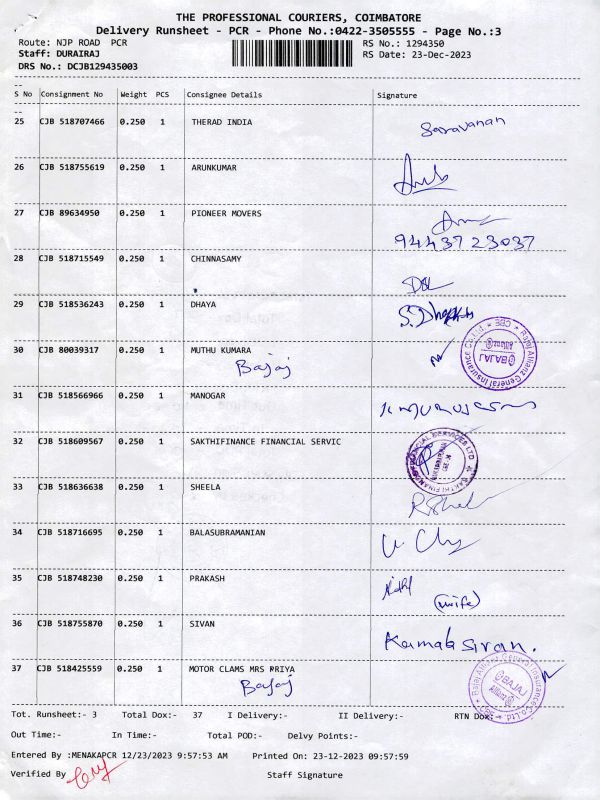 THE PROFESSIONAL COURIERS, COIMBATORE
Delivery Runsheet - PCR - Phone No.:0422-3505555 - Page No.:3
Route: NJP ROAD PCR RS No.: 1294350
Staff: DURAIRAJ RS Date: 23-Dec-2023
DRS No.: DCJB129435003
S No Consignment No Weight PCS Consignee Details Signature
25 CJB 518707466 0.250 1 THERAD INDIA Saravanan
26 CJB 518755619 0.250 1 ARUNKUMAR
27 CJB 89634950 0.250 1 PIONEER MOVERS
9443723037
28 CJB 518715549 0.250 1 CHINNASAMY
29 CJB 518536243 0.250 1 DHAYA
30 CJB 80039317 0.250 1 MUTHU KUMARA
Bajaj
Bajaj Allianz General Insurance Co. Ltd. CBE
BAJAJ Allianz
31 CJB 518566966 0.250 1 MANOGAR
32 CJB 518609567 0.250 1 SAKTHIFINANCE FINANCIAL SERVIC
33 CJB 518636638 0.250 1 SHEELA
34 CJB 518716695 0.250 1 BALASUBRAMANIAN
35 CJB 518748230 0.250 1 PRAKASH
(wife)
36 CJB 518755870 0.250 1 SIVAN Kamala sivan.
37 CJB 518425559 0.250 1 MOTOR CLAMS MRS PRIYA
Bajaj
Bajaj Allianz General Insurance Co. Ltd.
BAJAJ Allianz
Tot. Runsheet:- 3 Total Dox:- 37 I Delivery:- II Delivery:- RTN Dox:
Out Time:- In Time:- Total POD:- Delvy Points:-
Entered By :MENAKAPCR 12/23/2023 9:57:53 AM Printed On: 23-12-2023 09:57:59
Verified By Staff Signature